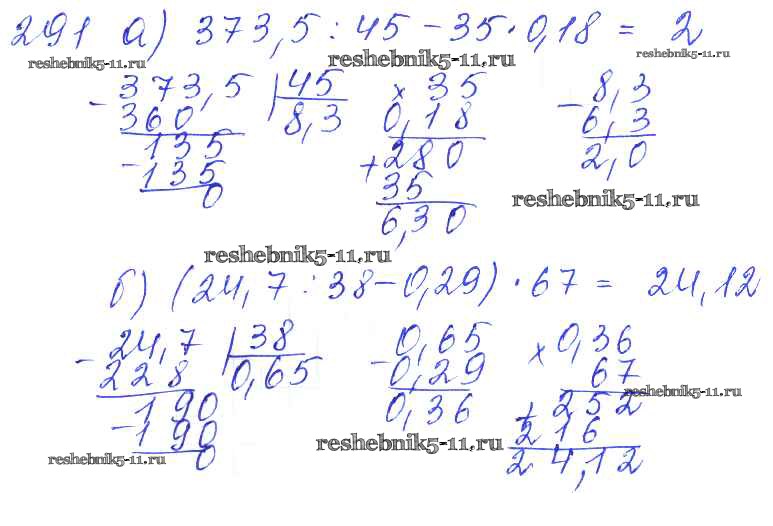 291 а) 373,5 : 45 − 35 · 0,18 = 2
reshebnik5-11.ru reshebnik5-11.ru reshebnik5-11.ru
− 373,5 | 45 × 35 − 8,3
360 8,3 0,18 6,3
135 + 280 2,0
− 135 35
0 6,30
reshebnik5-11.ru
reshebnik5-11.ru
б) (24,7 : 38 − 0,29) · 67 = 24,12
− 24,7 | 38 − 0,65 × 0,36
228 0,65 0,29 67
reshebnik5-11.ru
190 0,36 + 252
− 190 216
reshebnik5-11.ru reshebnik5-11.ru
0 24,12